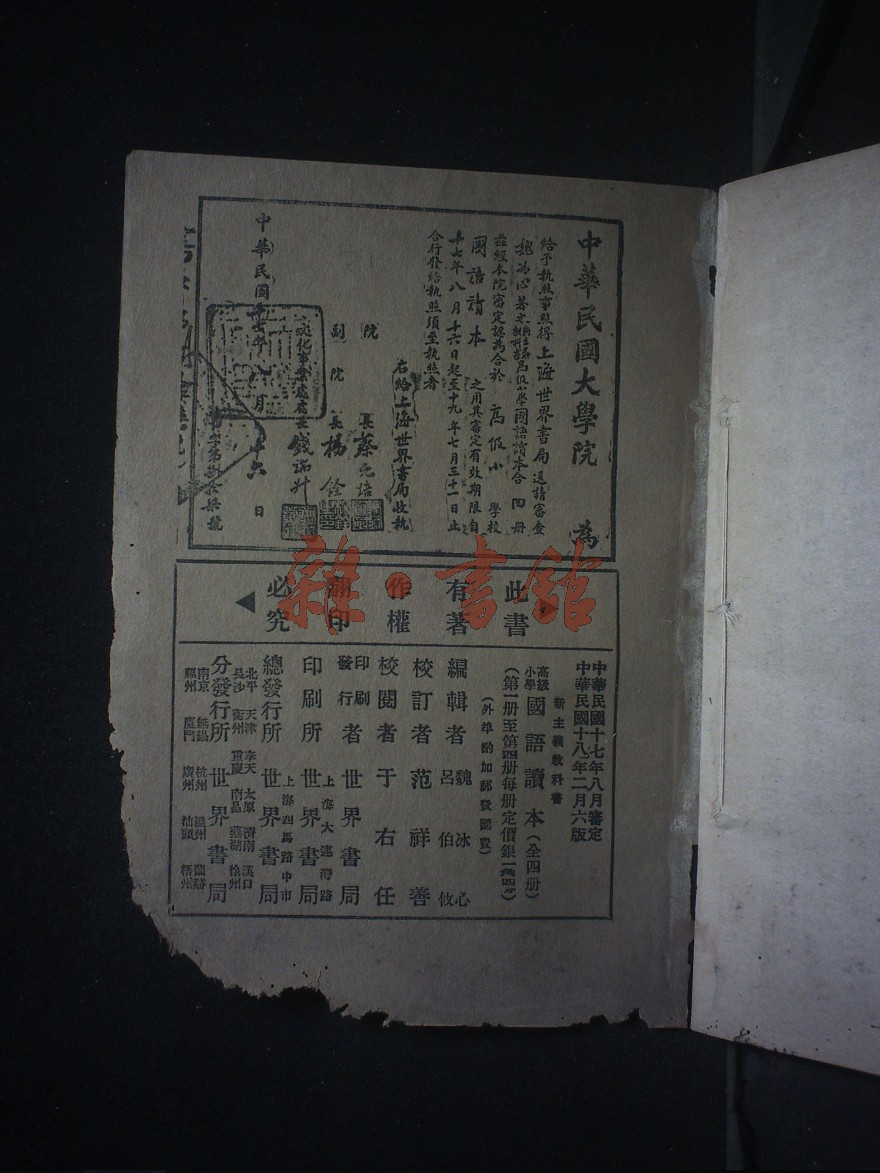 中華民國大學院 為
給予執照事照得上海世界書局送請審查
魏冰心等
高級小學國語讀本合四册
茲經本院審定認為合於 高級小 學校
國語讀本 之用其審定有效期限自
十七年八月十六日起至十九年七月三十一日止
合行發給執照須至執照者
右給上海世界書局收執
院長蔡元培
副院長楊銓
文化事業處處長錢端升
中華民國十七年八月十六日
此書
有著
作權
翻印
必究
中華民國十七年八月審定
中華民國十八年二月六版
新主義教科書
高級小學國語讀本(全四册)
(第一册至第四册每册定價銀一角四分)
(外埠酌加郵費匯費)
編輯者 魏冰心 呂伯攸
校訂者 范祥善
校閱者 于右任
印刷發行者 世界書局
上海大連灣路
印刷所 世界書局
上海四馬路中市
總發行所 世界書局
北平 天津 奉天 太原 濟南 漢口
長沙 衡州 重慶 南昌 蕪湖 徐州
分發行所 世界書局
南京 無錫 杭州 溫州 蘭谿
福州 廈門 廣州 汕頭 梧州
雜·書館